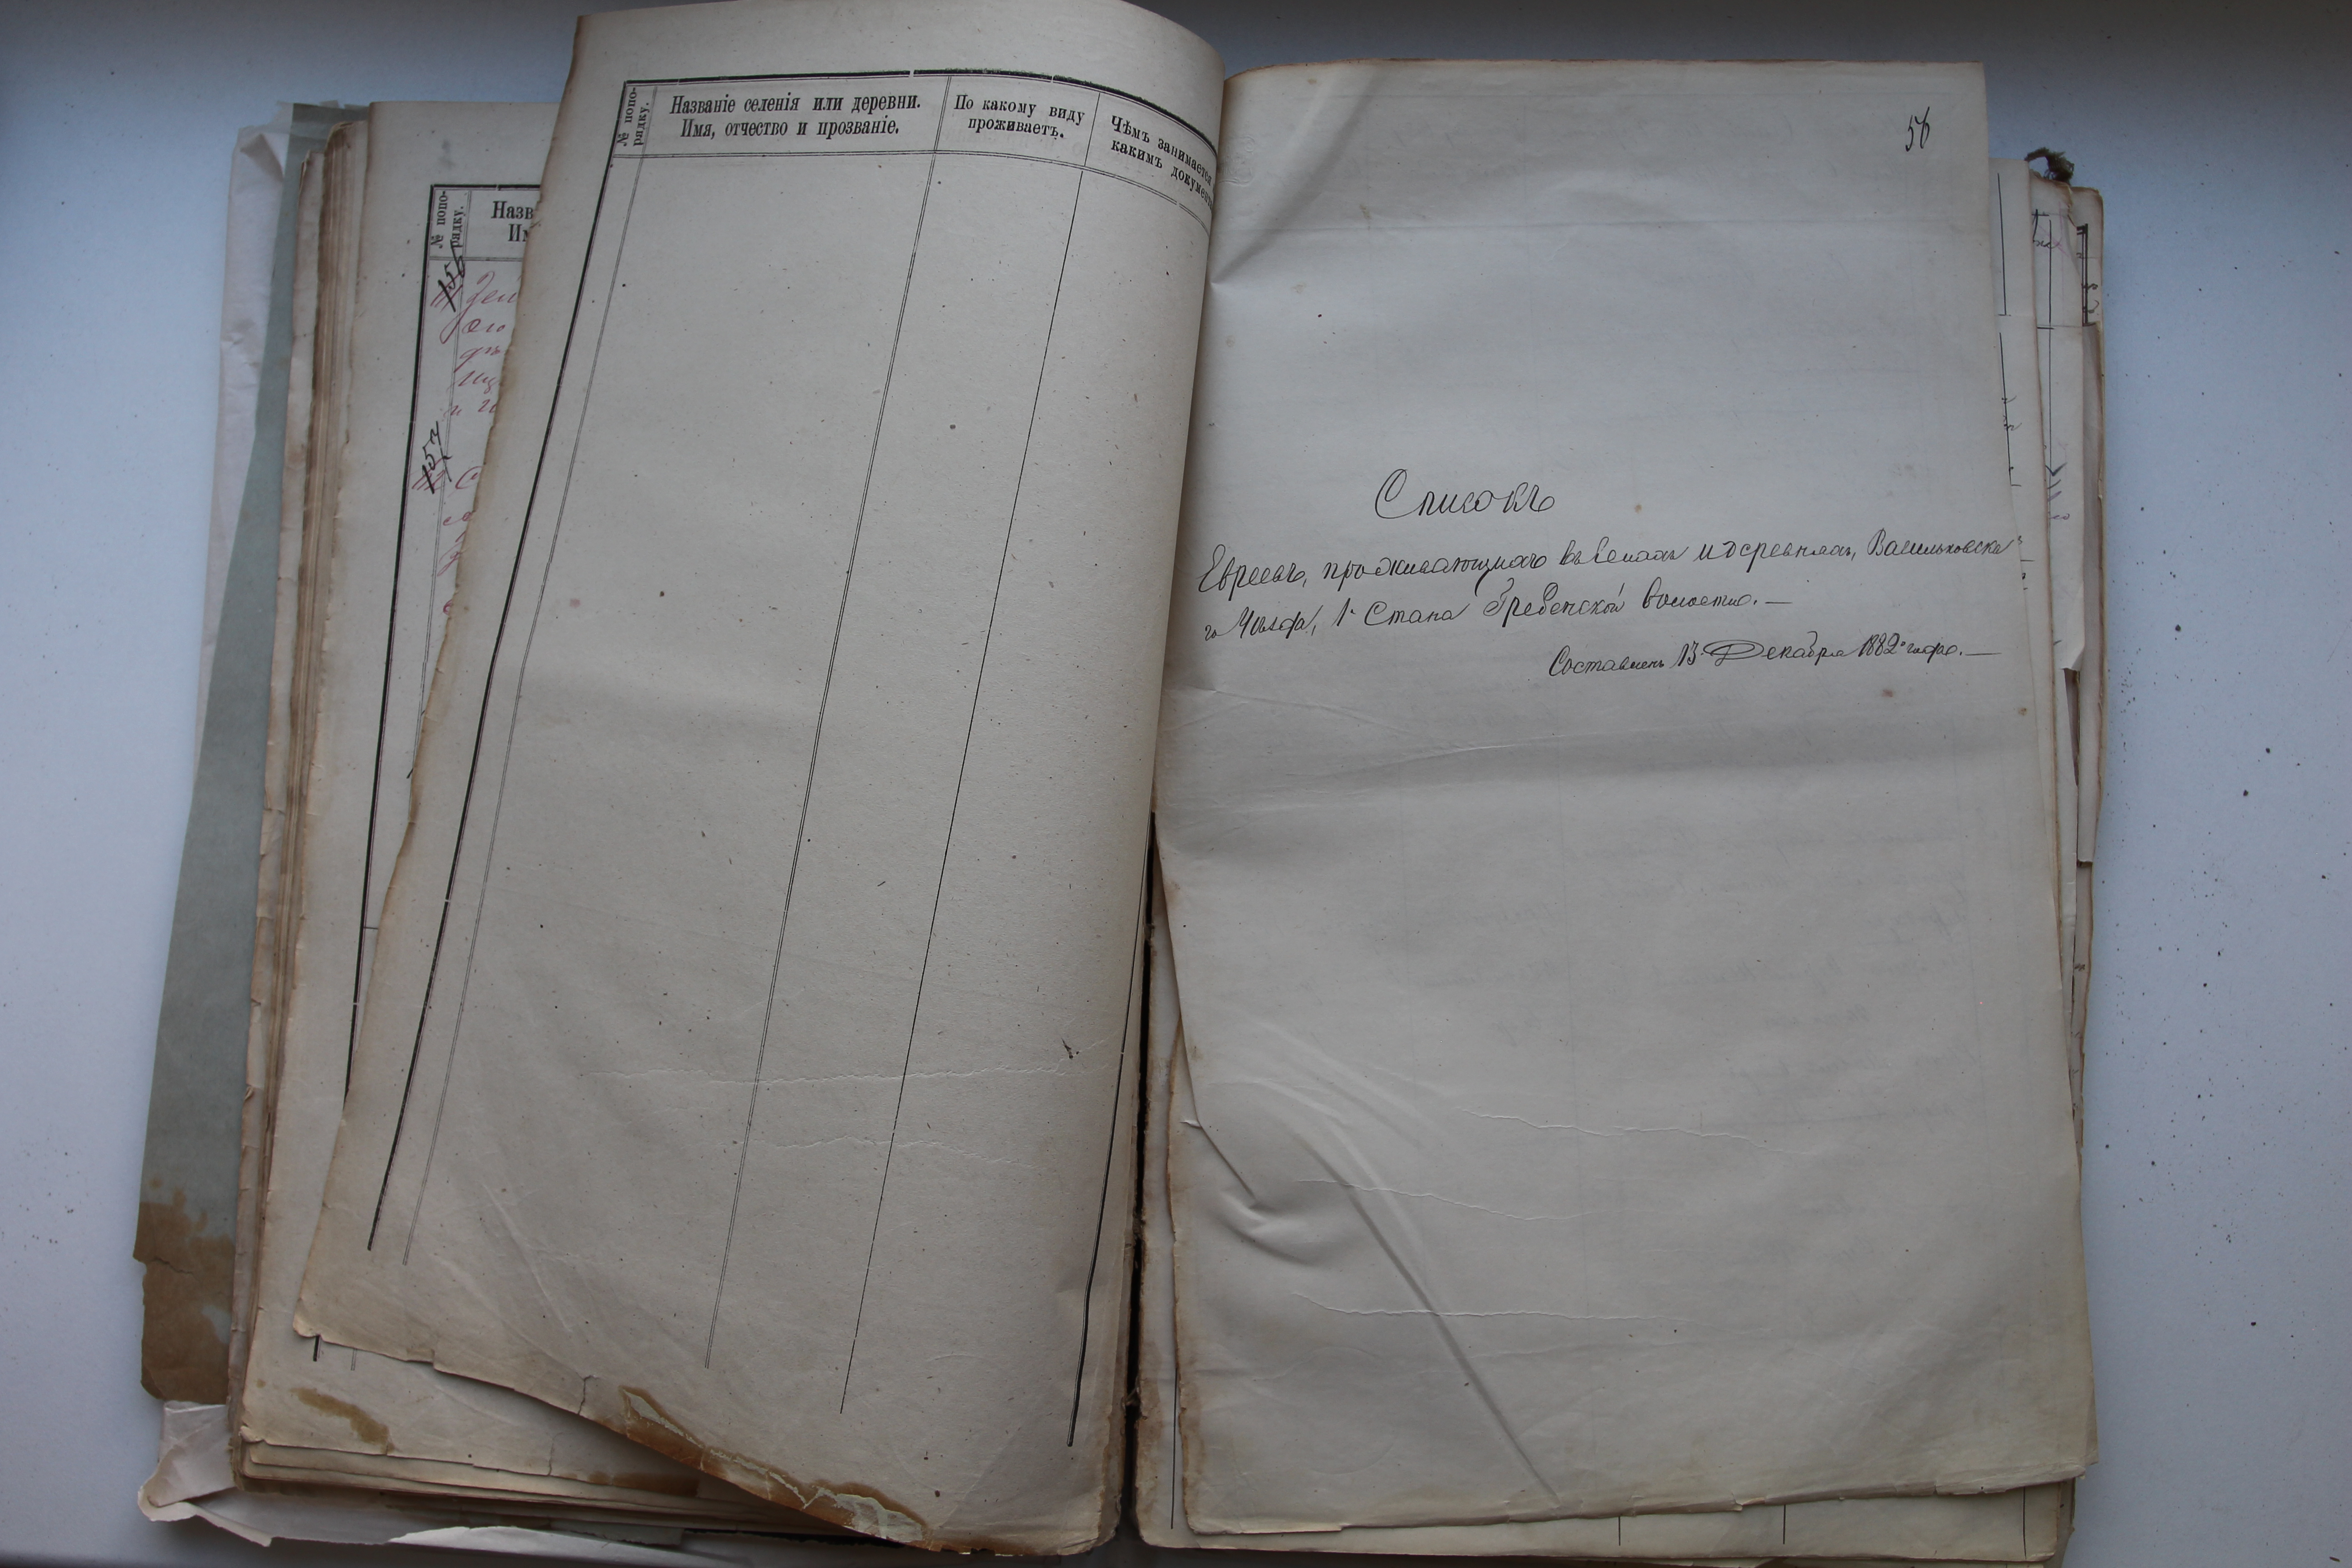 № попо-
рядку.
Названіе селенія или деревни.
Имя, отчество и прозваніе.
По какому виду
проживаетъ.
Чѣмъ занимается
какимъ
№ попо-
рядку.
156
157
56
Списокъ
Евреевъ, проживающихъ въ селахъ и деревняхъ, Васильковска
го Уѣзда, 1 Стана Гребенской волости. —
Составленъ 13 Декабря 1882 года. —